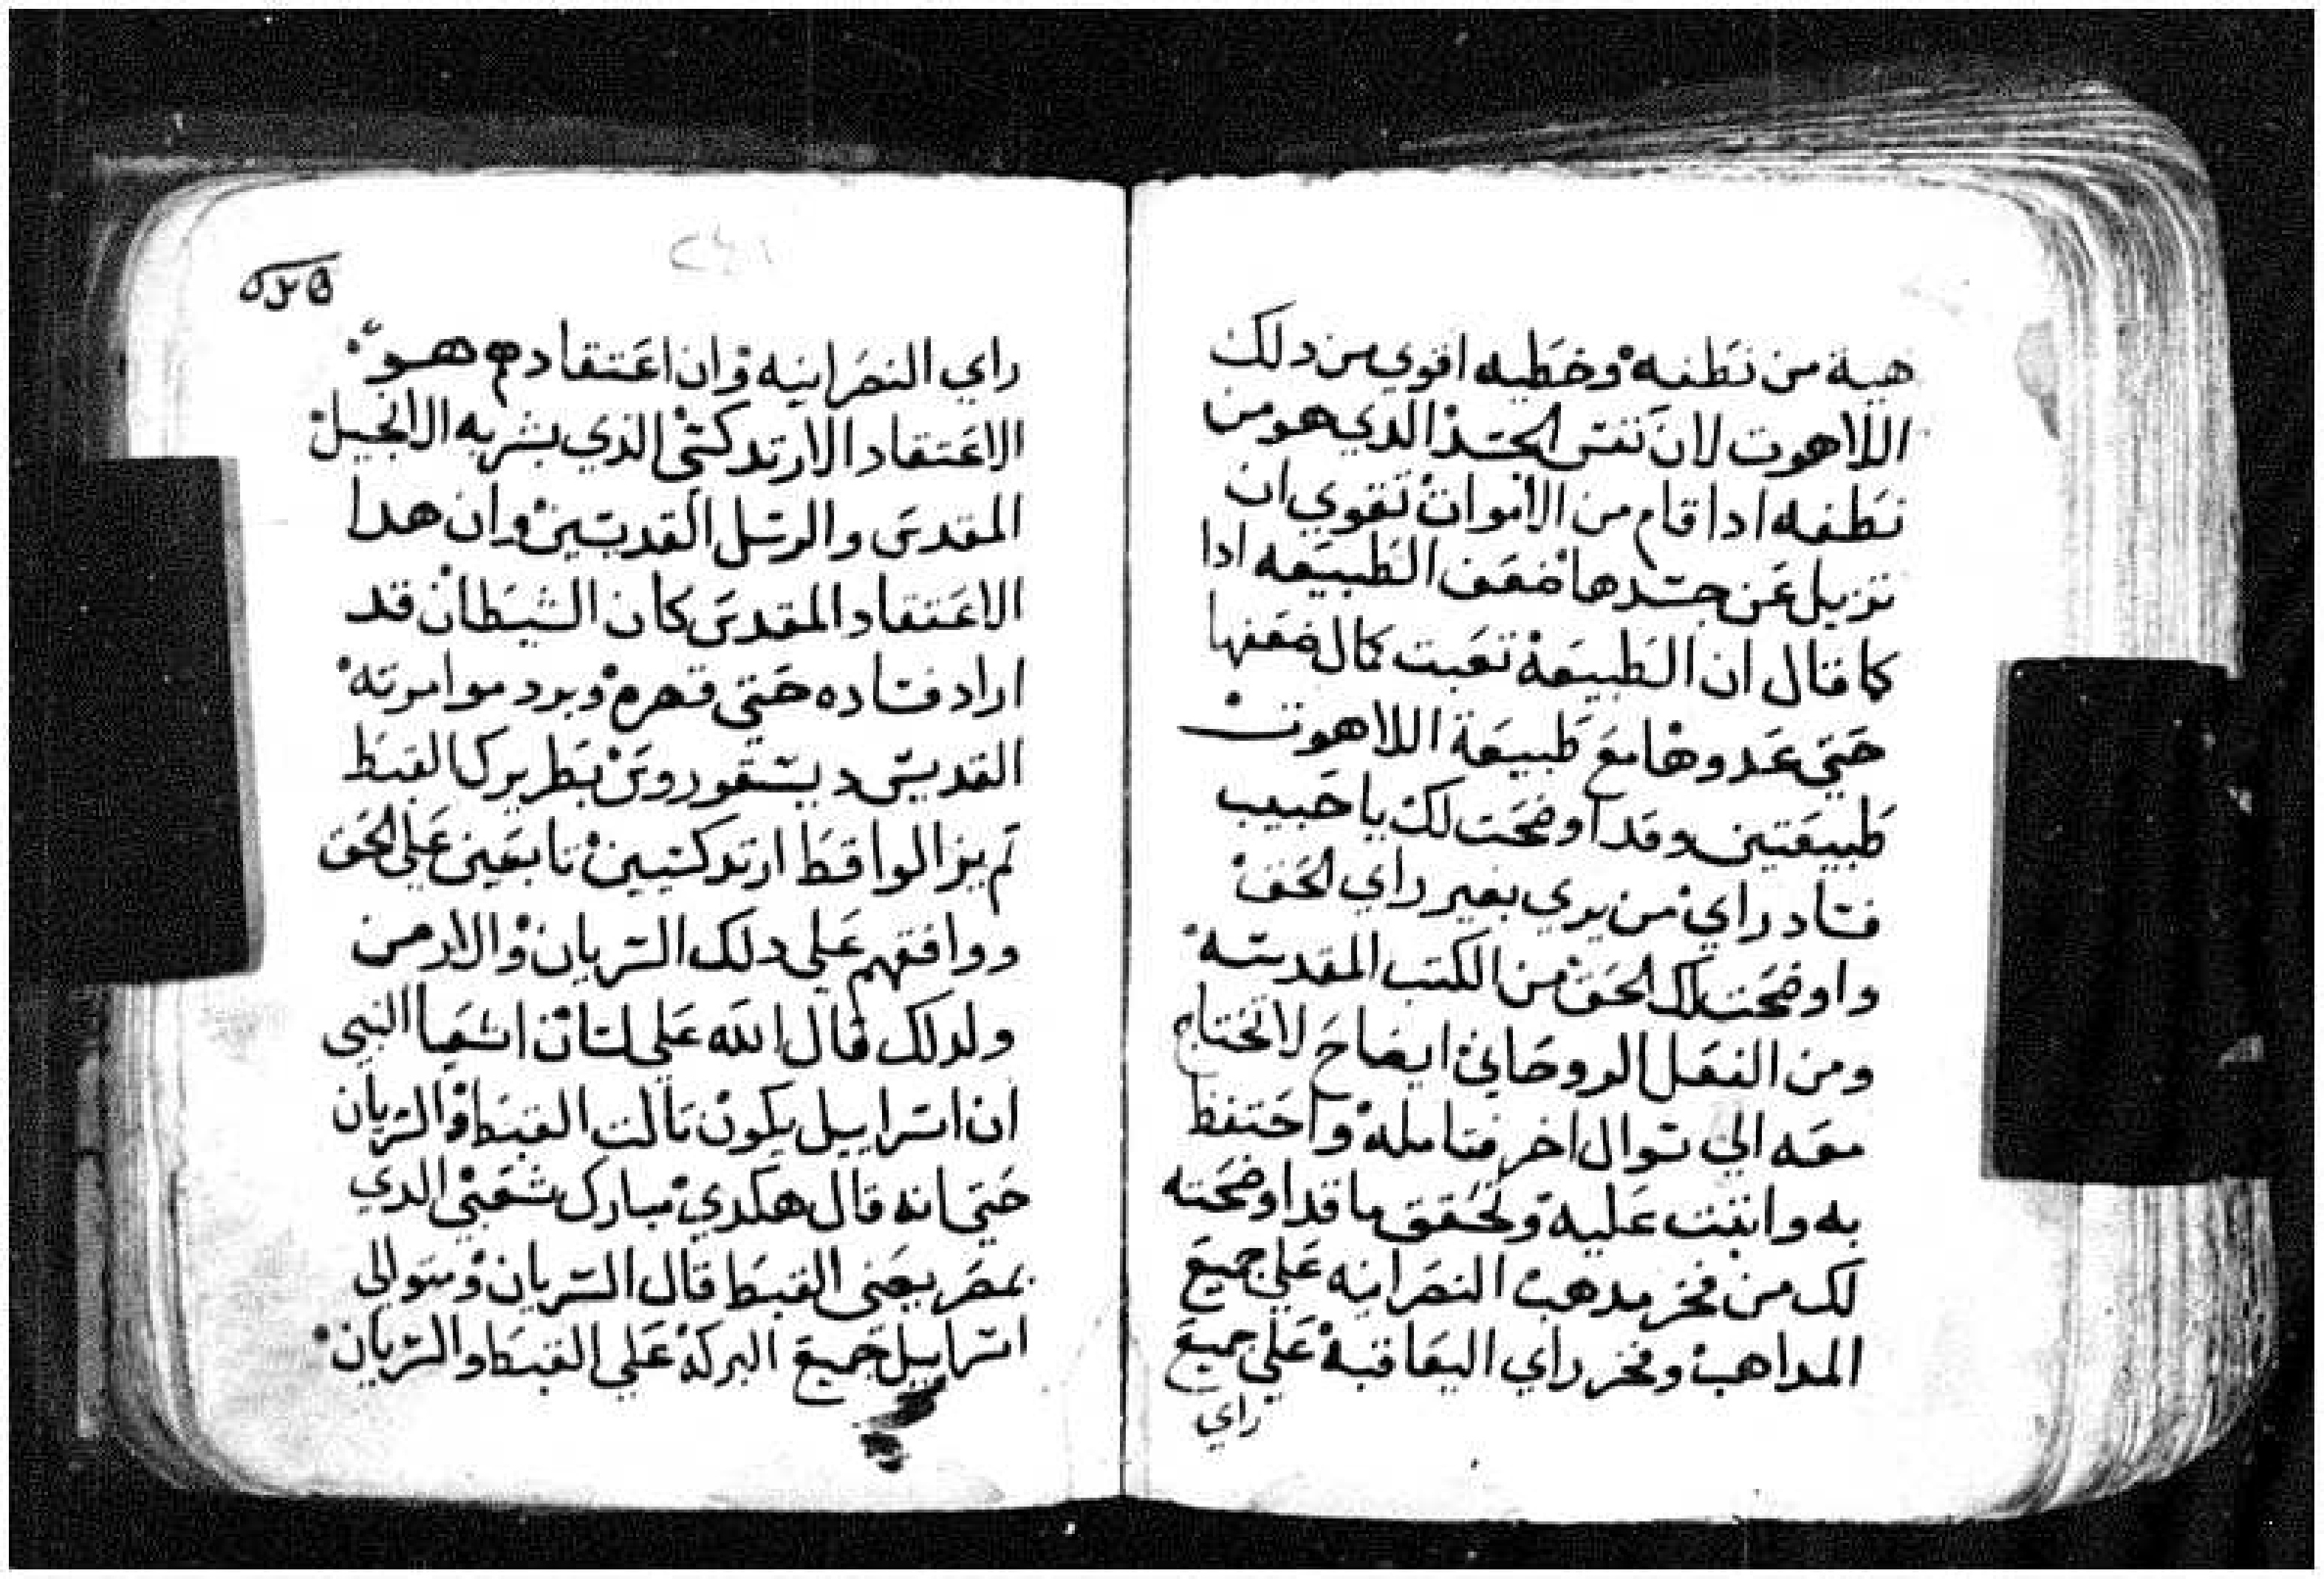 هية من نطفه وخطيه اقوي من دلك
اللاهوت لان نفس الجسد الدي هو من
نطفه ادا قام من الاموات تقوي ان
تزيل عن جسدها ضعف الطبيعه ادا
كما قال ان الطبيعة تعبت كمال ضعفها
حتي عدوها مع طبيعة اللاهوت
طبيعتين وقد اوضحت لك يا حبيب
فساد راي من يري بغير راي الحق
واوضحت لك الحق من الكتب المقدسه
ومن النقل الروحاني ايضاح لا تحتاج
معه الي سوال اخر فتامله واحتفظ
به واثبت عليه وتحقق ما قد اوضحته
لك من فخر مدهب النصرانيه علي جميع
المداهب وفخر راي اليعاقبة علي جميع
راي
راي النصرانيه وان اعتقادهم هو
الاعتقاد الارتدكسي الذي بشر به الانجيل
المقدس والرسل القديسين وان هدا
الاعتقاد المقدس كان الشيطان قد
اراد فساده حتي قهره وبرد موامرته
القديس ديسقوروس بطريرك القبط
لم يزالوا قط ارتدكسيين تابعين علي الحق
ووافقهم علي دلك السريان والارمن
ولدلك قال الله علي لسان اشعيا النبي
ان اسراييل يكون تالت القبط والسريان
حتي انه قال هكدي مبارك شعبي الدي
بمصر يعني القبط قال السريان وسوالي
اسراييل جميع البركة علي القبط والسريان